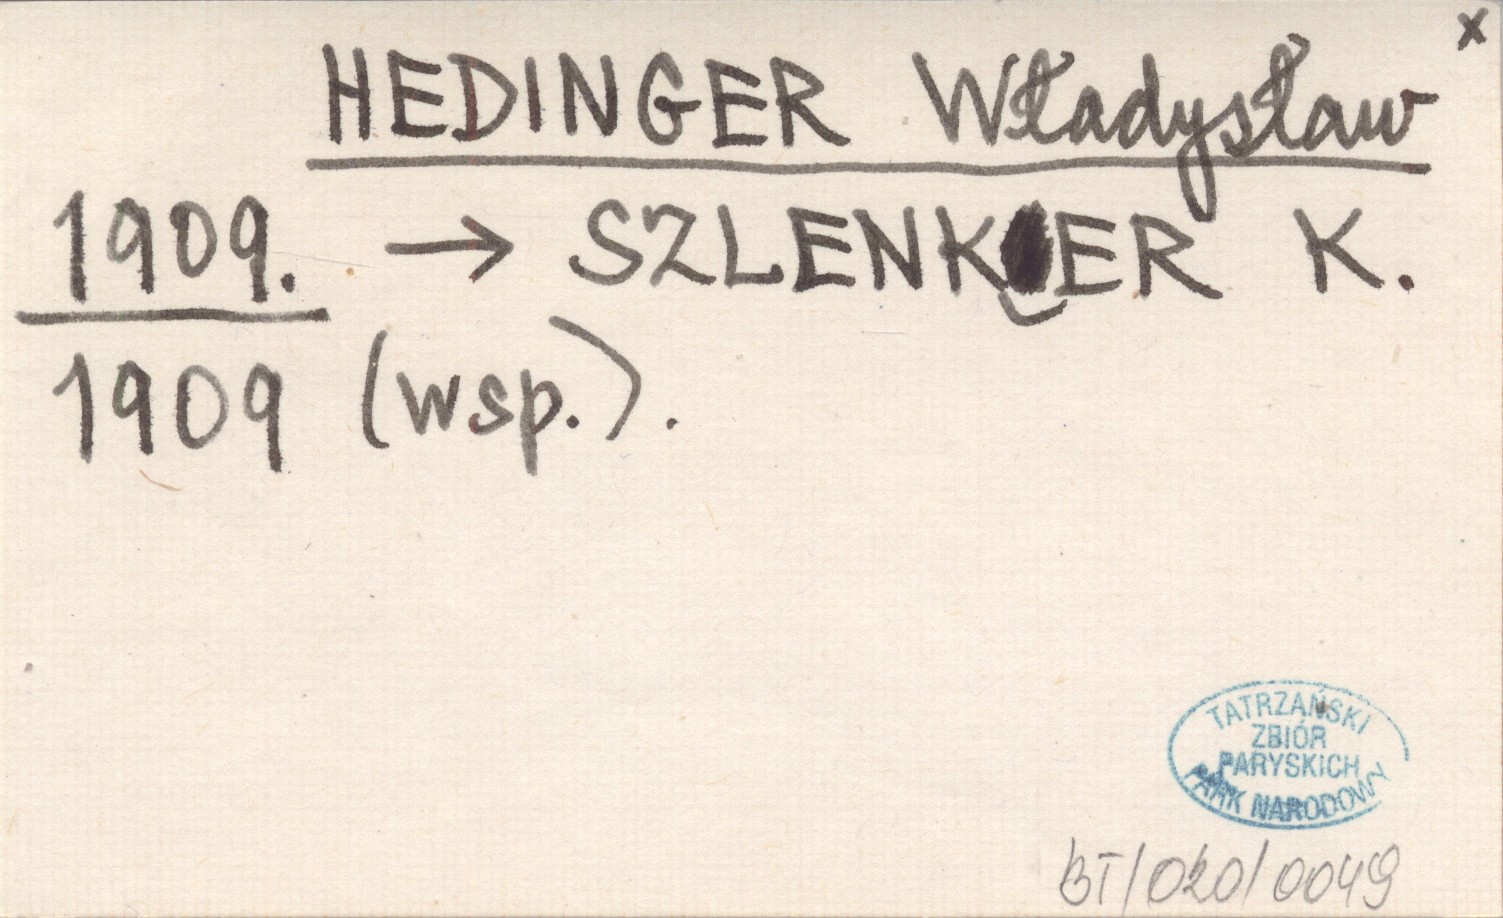 x
HEDINGER Władysław
1909. → SZLENKER K.
1909 (wsp.).
TATRZAŃSKI
ZBIÓR
PARYSKICH
PARK NARODOWY
BT/020/0049